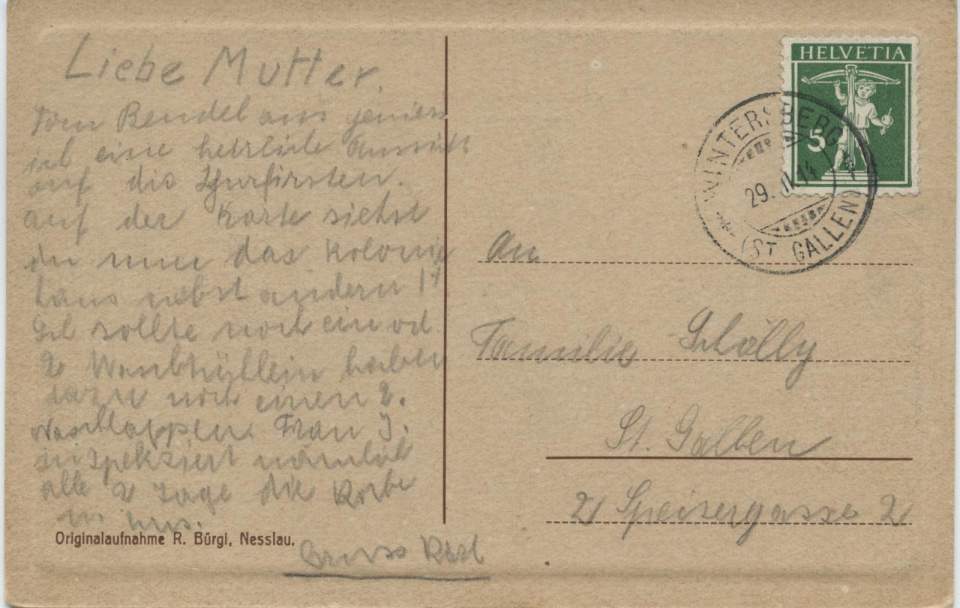 Liebe Mutter.
Vom Bendel aus geniess
ich eine herrliche Aussicht
auf die Churfirsten.
auf der Karte siehst
du nur das Kolonie
haus nebst andern
Ich sollte noch ein od.
2 Waschtüchlein haben
dazu noch einen 2.
Waschlappen. Frau J.
inspektiert nämlich
alle 2 Tage die Körbe
Gruss
Originalaufnahme R. Bürgi, Nesslau.
HELVETIA
5
WINTERSBERG
29. II. 14
(ST. GALLEN)
An
Familie Schölly
St. Gallen
21 Speisergasse 21